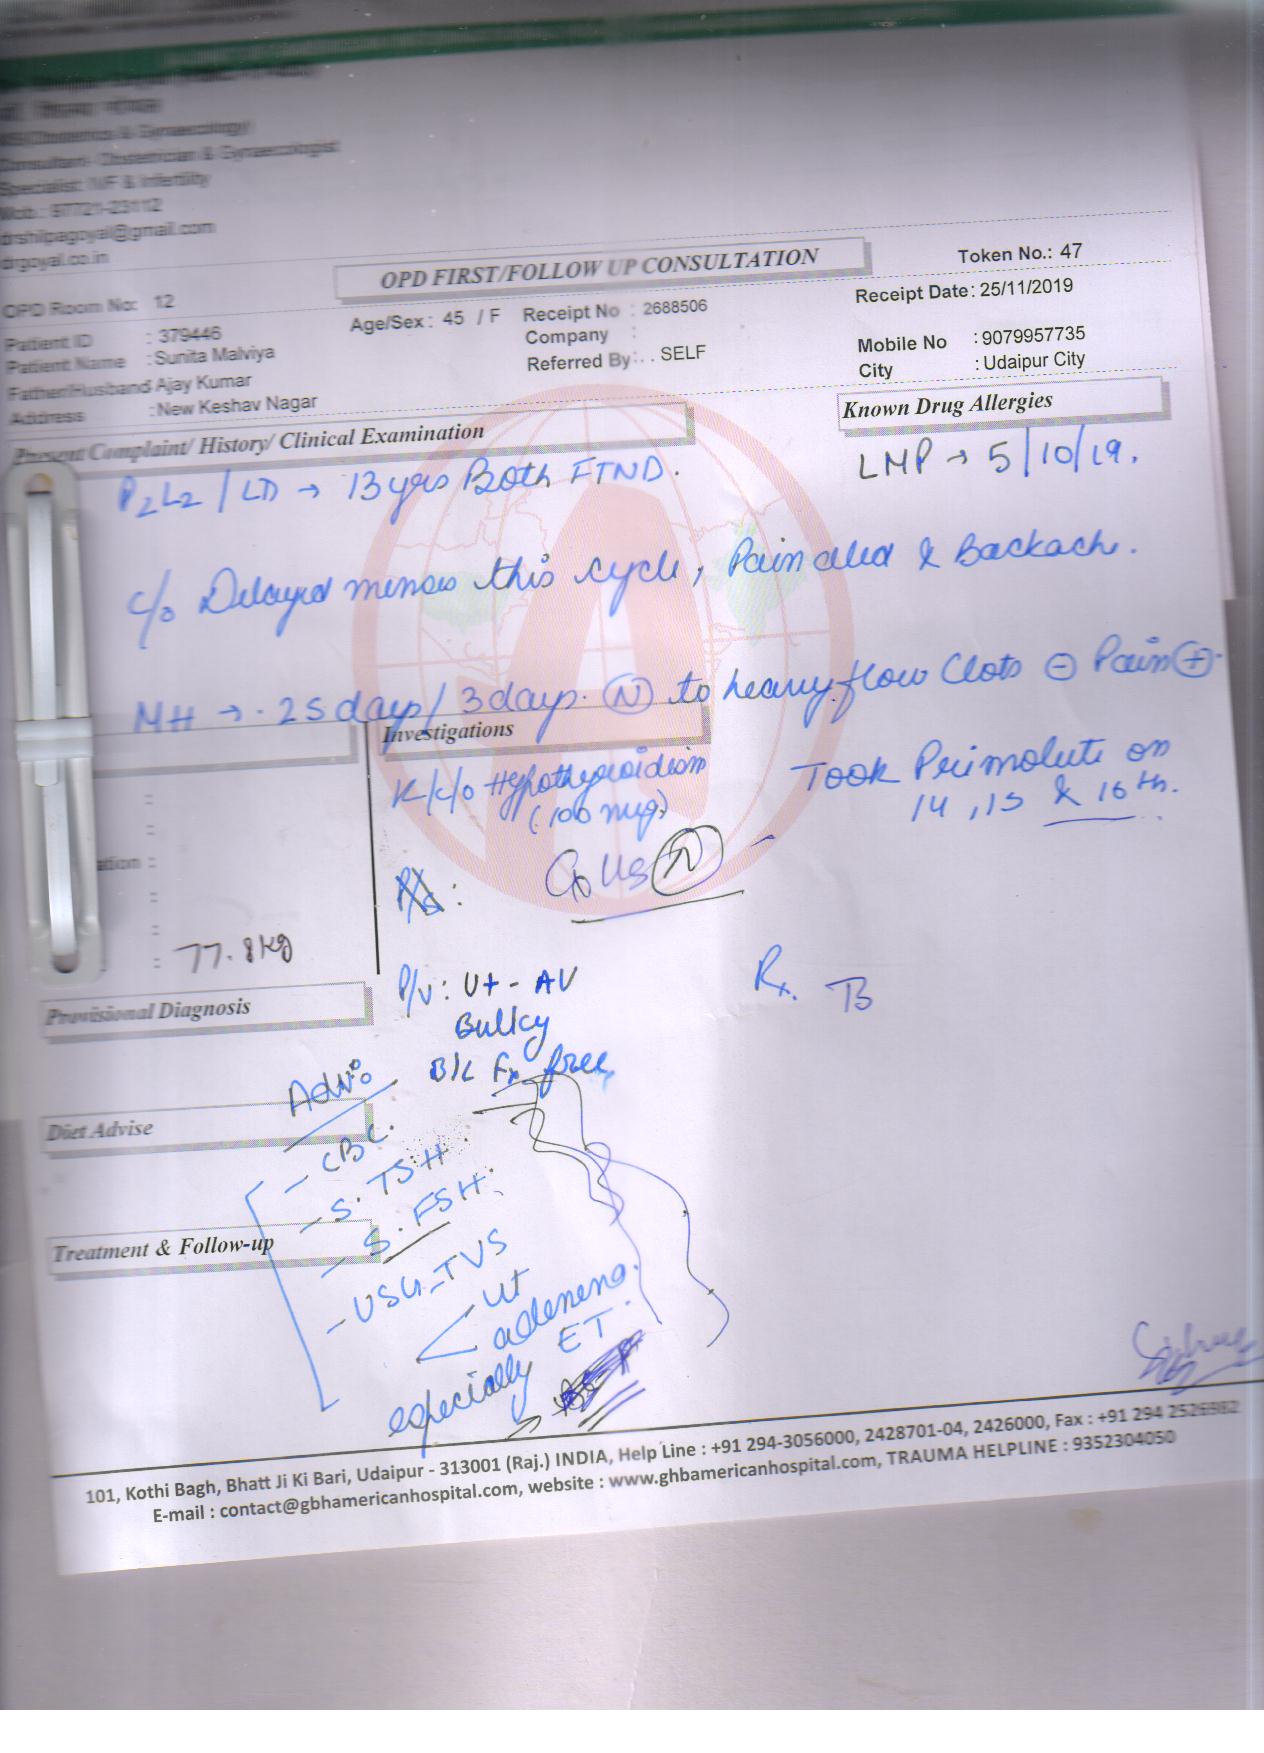 (Obstetrics & Gynaecology)
Consultant- Obstetrician & Gynaecologist
Specialist: IVF & Infertility
Mob.: 97721-23112
drshilpagoyal@gmail.com
drgoyal.co.in
OPD FIRST/FOLLOW UP CONSULTATION
Token No.: 47
OPD Room No: 12
Age/Sex : 45 / F
Receipt No : 2688506
Receipt Date: 25/11/2019
Patient ID : 379446
Company :
Mobile No : 9079957735
Patient Name : Sunita Malviya
Referred By: . . SELF
City : Udaipur City
Father/Husband: Ajay Kumar
Address : New Keshav Nagar
Present Complaint/ History/ Clinical Examination
Known Drug Allergies
P2L2 / LD → 13 yrs Both FTND.
LMP → 5/10/19.
c/o Delayed menses this cycle, Pain abd & Backach.
MH → 25 days/ 3 days. (N) to heavy flow Clots ⊖ Pain ⊕.
Investigations
K/c/o Hypothyroidism
(100 mcg)
Took Primolute on
14, 15 & 16th.
P/s :
77.8 kg
P/v : Ut - AV
Bulky
B/L Fx free
Rx. T
Provisional Diagnosis
Adv:
Diet Advise
- CBC.
- S. TSH.
- S. FSH.
Treatment & Follow-up
- USG-TVS
Ut
adenexa.
especially ET.
101, Kothi Bagh, Bhatt Ji Ki Bari, Udaipur - 313001 (Raj.) INDIA, Help Line : +91 294-3056000, 2428701-04, 2426000, Fax : +91 294 2526982
E-mail : contact@gbhamericanhospital.com, website : www.ghbamericanhospital.com, TRAUMA HELPLINE : 9352304050